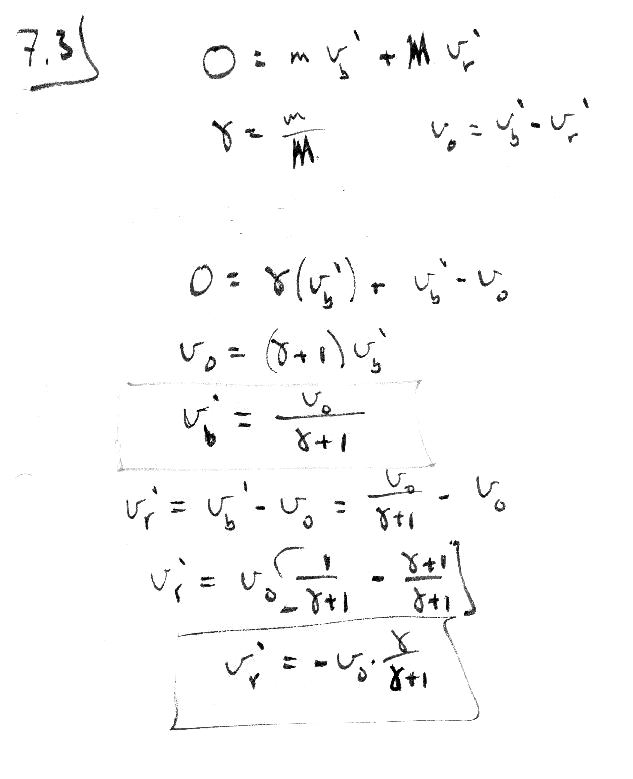 7.3
0 = m v_b' + M v_r'
γ = m/M    v_0 = v_b' - v_r'
0 = γ(v_b') + v_b' - v_0
v_0 = (γ+1) v_b'
v_b' = v_0/(γ+1)
v_r' = v_b' - v_0 = v_0/(γ+1) - v_0
v_r' = v_0 [1/(γ+1) - (γ+1)/(γ+1)]
v_r' = -v_0 · γ/(γ+1)